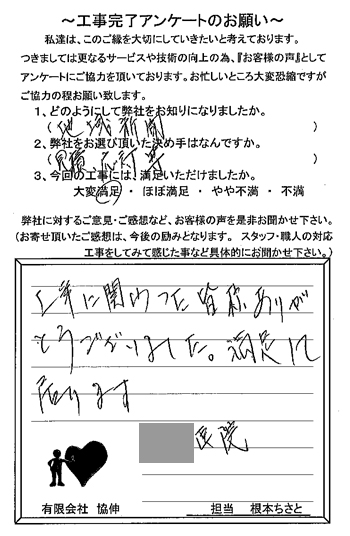 ～工事完了アンケートのお願い～
私達は、このご縁を大切にしていきたいと考えております。
つきましては更なるサービスや技術の向上の為、『お客様の声』として
アンケートにご協力を頂いております。お忙しいところ大変恐縮ですが
ご協力の程お願い致します。
1、どのようにして弊社をお知りになりましたか。
（地域新聞）
2、弊社をお選び頂いた決め手はなんですか。
（見積、応対等）
3、今回の工事には、満足いただけましたか。
大変満足 ・ ほぼ満足 ・ やや不満 ・ 不満
弊社に対するご意見・ご感想など、お客様の声を是非お聞かせ下さい。
（お寄せ頂いたご感想は、今後の励みとなります。 スタッフ・職人の対応
工事をしてみて感じた事など具体的にお聞かせ下さい。）
工事に関わった皆様ありが
とうございました。満足して
居ります
医院
有限会社 協伸
担当 根本ちさと